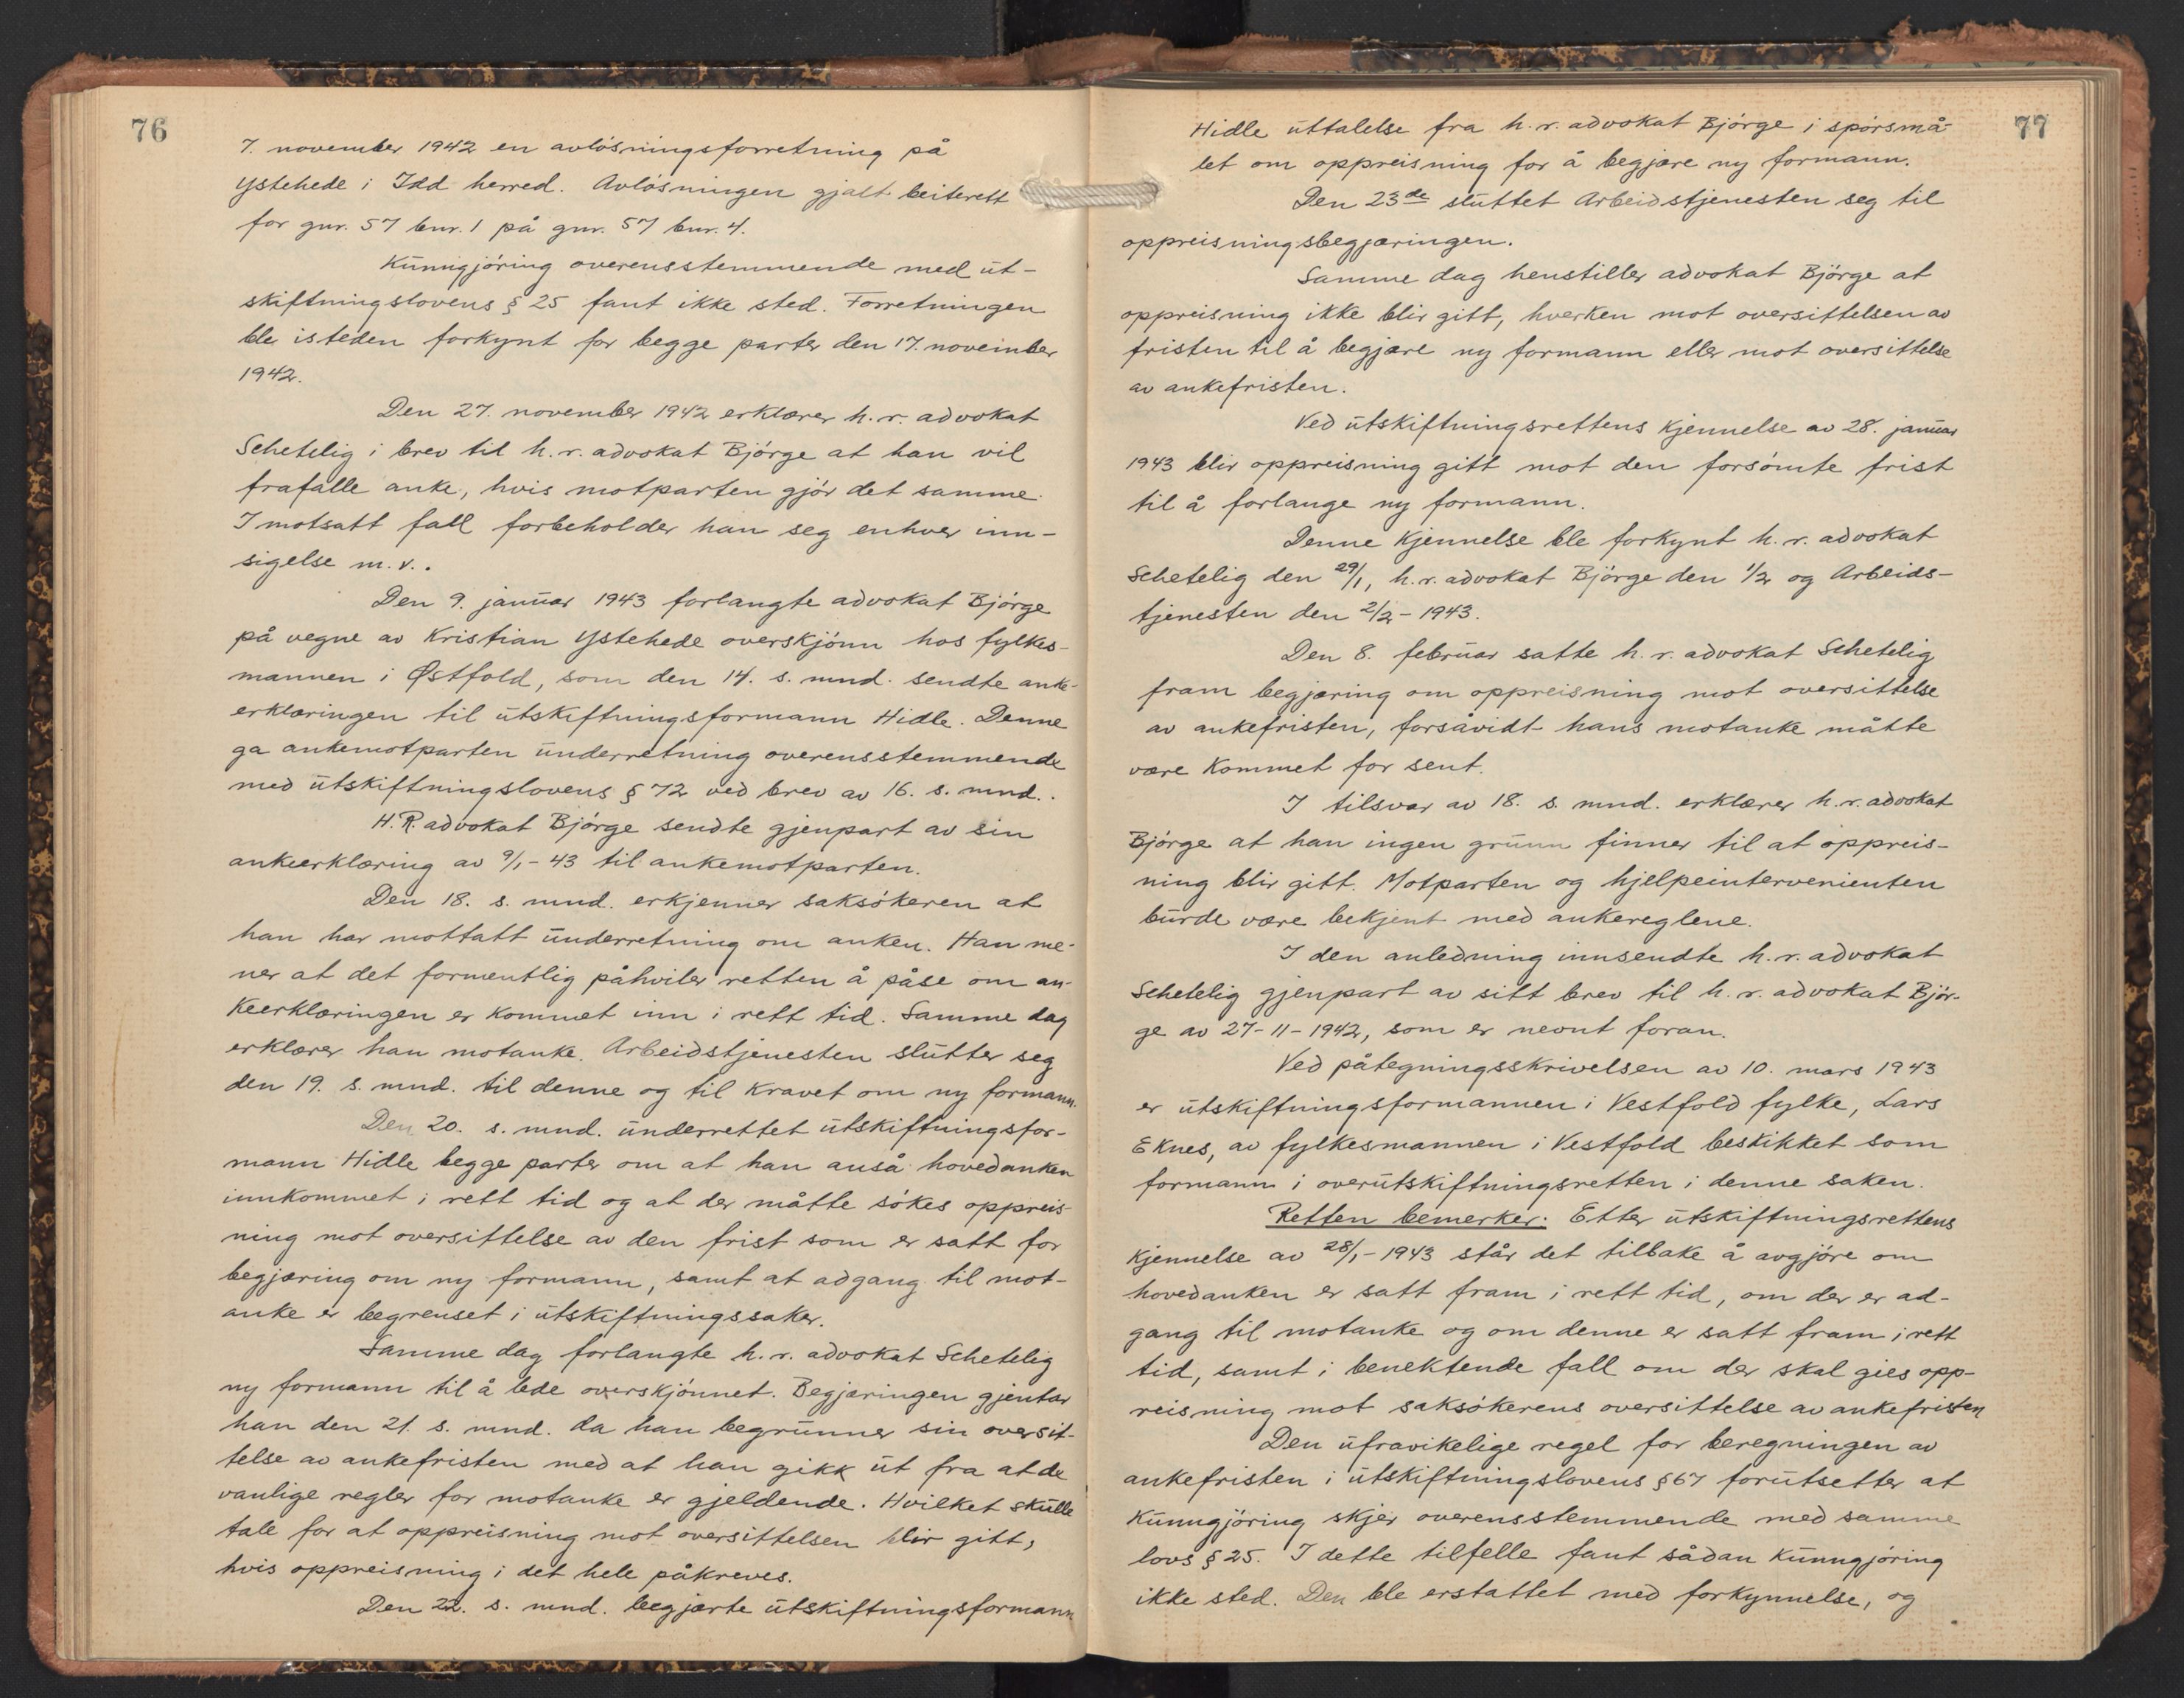 76
7. november 1942 en avlösningsforretning på
Ystehede i Idd herred. Avlösningen gjalt beiterett
for gnr. 57 bnr. 1 på gnr. 57 bnr. 4.
Kunngjöring overensstemmende med ut-
skiftningslovens § 25 fant ikke sted. Forretningen
ble isteden forkynt for begge parter den 17. november
1942.
Den 27. november 1942 erklærer h.r. advokat
Schetelig i brev til h.r. advokat Björge at han vil
frafalle anke, hvis motparten gjör det samme.
I motsatt fall forbeholder han seg enhver inn-
sigelse m.v..
Den 9. januar 1943 forlangte advokat Björge
på vegne av Kristian Ystehede overskjönn hos fylkes-
mannen i Østfold, som den 14. s. mnd. sendte anke-
erklæringen til utskiftningsformann Hidle. Denne
ga ankemotparten underretning overensstemmende
med utskiftningslovens § 72 ved brev av 16. s. mnd..
H.R. advokat Björge sendte gjenpart av sin
ankeerklæring av 9/1-43 til ankemotparten.
Den 18. s. mnd. erkjenner saksökeren at
han har mottatt underretning om anken. Han me-
ner at det formentlig påhviler retten å påse om an-
keerklæringen er kommet inn i rett tid. Samme dag
erklærer han motanke. Arbeidstjenesten slutter seg
den 19. s. mnd. til denne og til kravet om ny formann.
Den 20. s. mnd. underrettet utskiftningsfor-
mann Hidle begge parter om at han anså hovedanken
innkommet i rett tid og at der måtte sökes oppreis-
ning mot oversittelse av den frist som er satt for
begjæring om ny formann, samt at adgang til mot-
anke er begrenset i utskiftningssaker.
Samme dag forlangte h.r. advokat Schetelig
ny formann til å lede overskjönnet. Begjæringen gjentar
han den 21. s. mnd. da han begrunner sin oversit-
telse av ankefristen med at han gikk ut fra at de
vanlige regler for motanke er gjeldende. Hvilket skulle
tale for at oppreisning mot oversittelsen blir gitt,
hvis oppreisning i det hele påkreves.
Den 22. s. mnd. begjærte utskiftningsformann
77
Hidle uttalelse fra h.r. advokat Björge i spörsmå-
let om oppreisning for å begjære ny formann.
Den 23de sluttet Arbeidstjenesten seg til
oppreisningsbegjæringen.
Samme dag henstiller advokat Björge at
oppreisning ikke blir gitt, hverken mot oversittelsen av
fristen til å begjære ny formann eller mot oversittelse
av ankefristen.
Ved utskiftningsrettens kjennelse av 28. januar
1943 blir oppreisning gitt mot den forsömte frist
til å forlange ny formann.
Denne kjennelse ble forkynt h.r. advokat
Schetelig den 29/1, h.r. advokat Björge den 1/2 og Arbeids-
tjenesten den 2/2-1943.
Den 8. februar satte h.r. advokat Schetelig
fram begjæring om oppreisning mot oversittelse
av ankefristen, forsåvidt hans motanke måtte
være kommet for sent.
I tilsvar av 18. s. mnd. erklærer h.r. advokat
Björge at han ingen grunn finner til at oppreis-
ning blir gitt. Motparten og hjelpeintervenienten
burde være bekjent med ankereglene.
I den anledning innsendte h.r. advokat
Schetelig gjenpart av sitt brev til h.r. advokat Björ-
ge av 27-11-1942, som er nevnt foran.
Ved påtegningsskrivelsen av 10. mars 1943
er utskiftningsformannen i Vestfold fylke, Lars
Eknes, av fylkesmannen i Vestfold beskikket som
formann i overutskiftningsretten i denne saken.
Retten bemerker: Etter utskiftningsrettens
kjennelse av 28/1-1943 står det tilbake å avgjöre om
hovedanken er satt fram i rett tid, om der er ad-
gang til motanke og om denne er satt fram i rett
tid, samt i benektende fall om der skal gies opp-
reisning mot saksökerens oversittelse av ankefristen
Den ufravikelige regel for beregningen av
ankefristen i utskiftningslovens § 67 forutsetter at
kunngjöring skjer overensstemmende med samme
lovs § 25. I dette tilfelle fant sådan kunngjöring
ikke sted. Den ble erstattet med forkynnelse, og